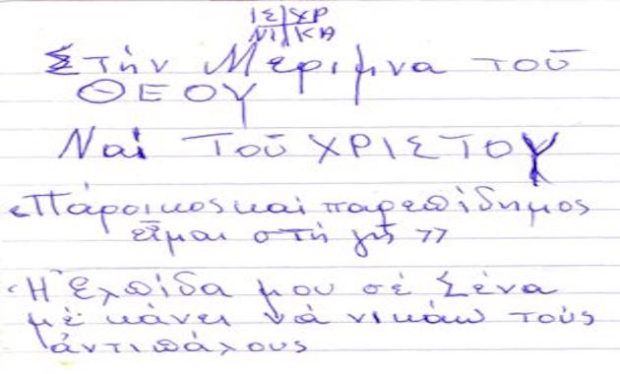 ΙΣ ΧΡ
ΝΙ ΚΑ
Στήν Μέριμνα τοῦ
ΘΕΟΥ
Ναί Τοῦ ΧΡΙΣΤΟΥ
«Πάροικος καί παρεπίδημος
εἶμαι στή γῆ»
«Ἡ Ἐλπίδα μου σέ Σένα
μέ κάνει νά νικάω τούς
ἀντιπάλους